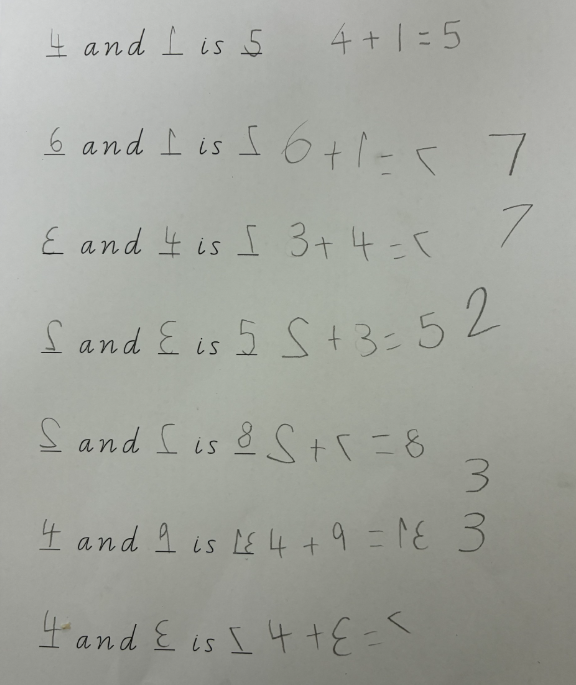 4 and 1 is 5 4+1=5
6 and 1 is 7 6+1=7 7
3 and 4 is 7 3+4=7 7
2 and 3 is 5 2+3=5 2
2 and 7 is 8 2+7=8
3
4 and 9 is 131 4+9=131 3
4 and 3 is 7 4+3=7